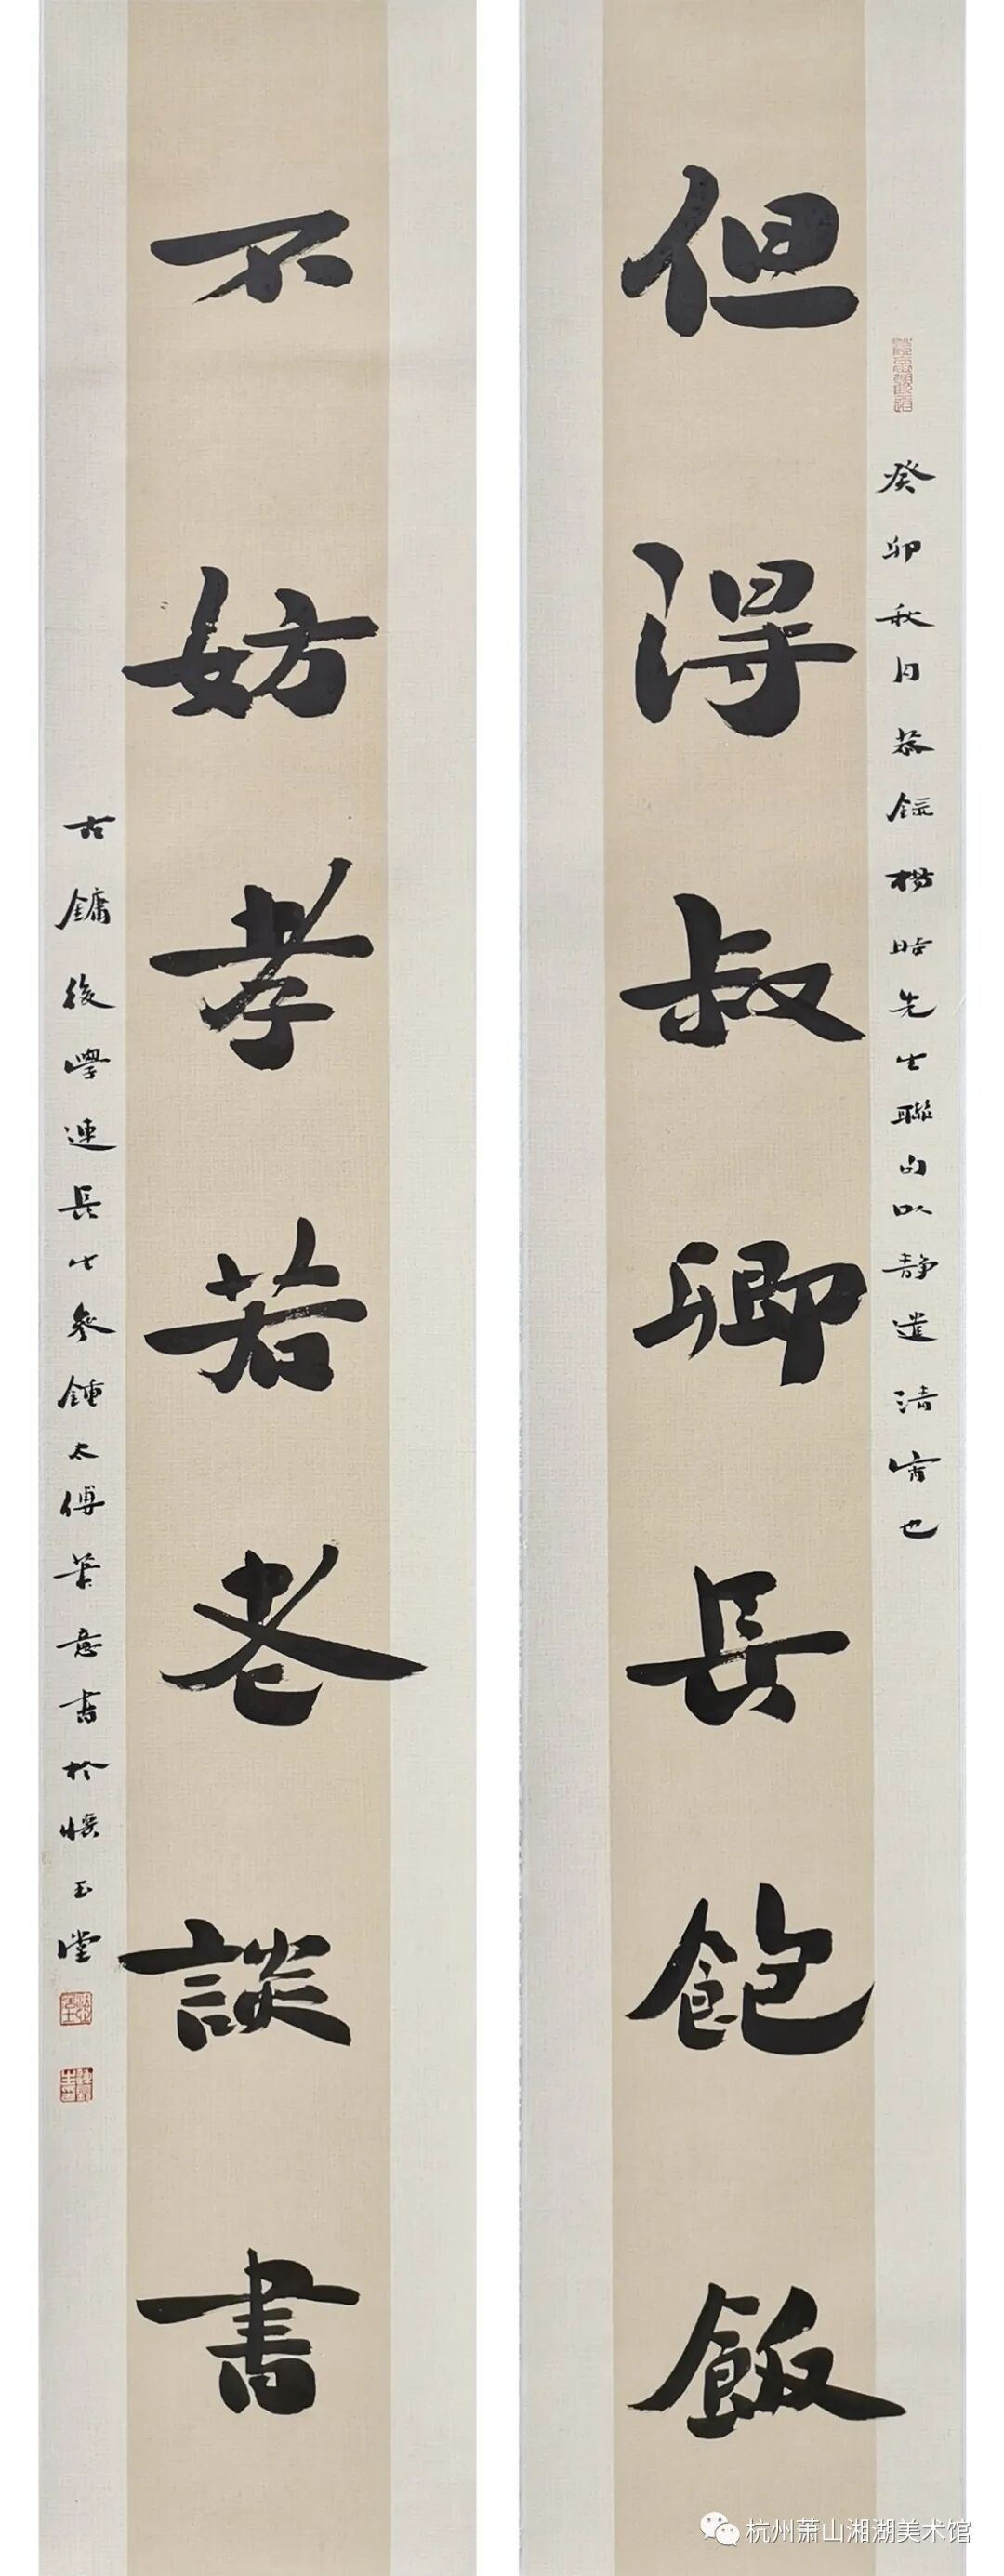 但得叔卿長飽飯
癸卯秋月恭錄楊昀先生聯句以靜遣清寂也
不妨孝若老談書
古鏞後學連長生參鍾太傅筆意書於懷玉堂
杭州萧山湘湖美术馆